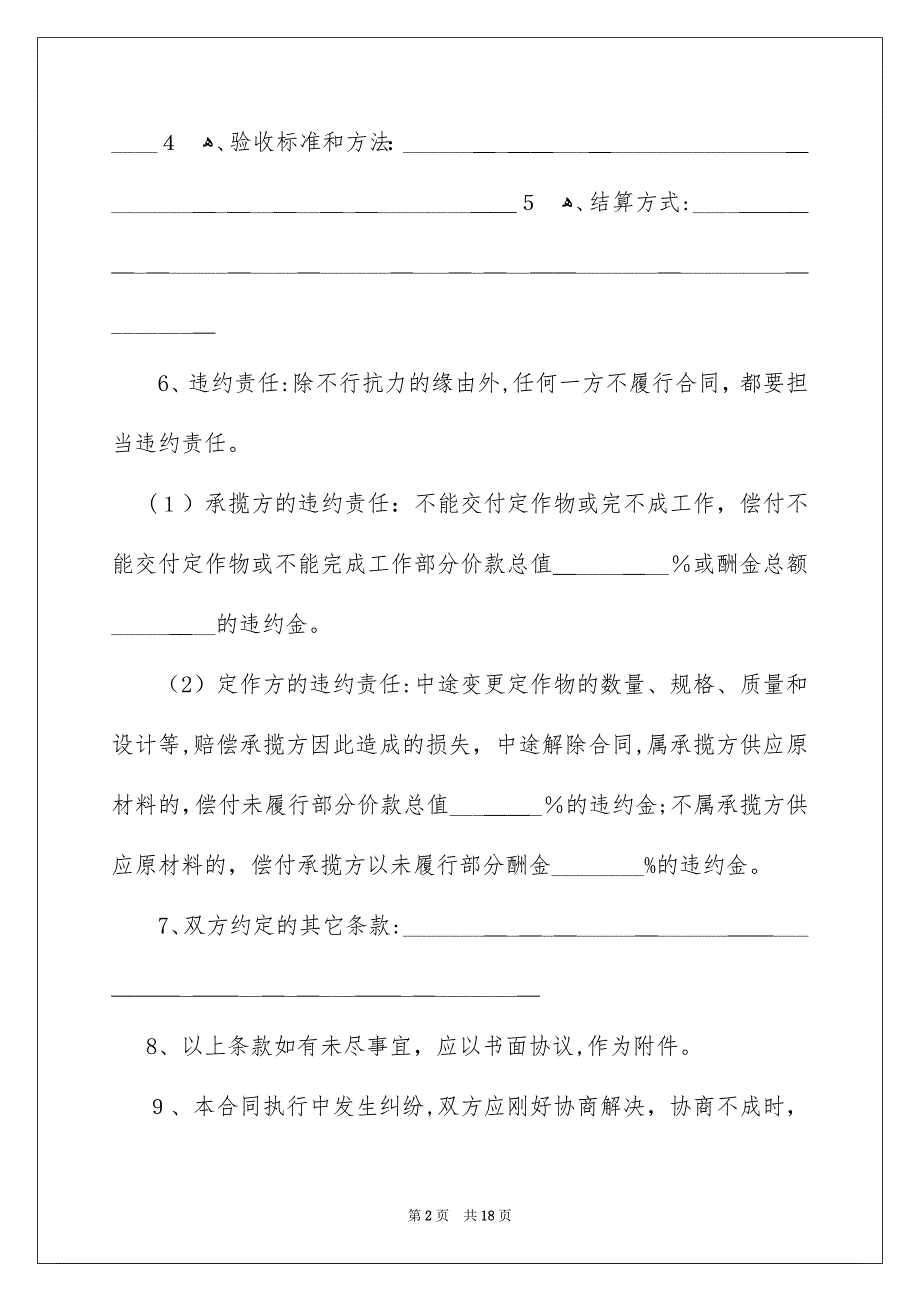 ____4 ﻫ、验收标准和方法:___________________________________
___________________________________5 ﻫ、结算方式:__________
____________________________________________________________
_________
6、违约责任:除不行抗力的缘由外,任何一方不履行合同，都要担
当违约责任。
(１）承揽方的违约责任：不能交付定作物或完不成工作，偿付不
能交付定作物或不能完成工作部分价款总值__________％或酬金总额
_________的违约金。
（2）定作方的违约责任:中途变更定作物的数量、规格、质量和
设计等,赔偿承揽方因此造成的损失，中途解除合同,属承揽方供应原
材料的,偿付未履行部分价款总值________％的违约金;不属承揽方供
应原材料的，偿付承揽方以未履行部分酬金________%的违约金。
7、双方约定的其它条款:___________________________________
_____________________________________
8、以上条款如有未尽事宜，应以书面协议,作为附件。
９、本合同执行中发生纠纷,双方应刚好协商解决，协商不成时，
第 2 页 共 18 页